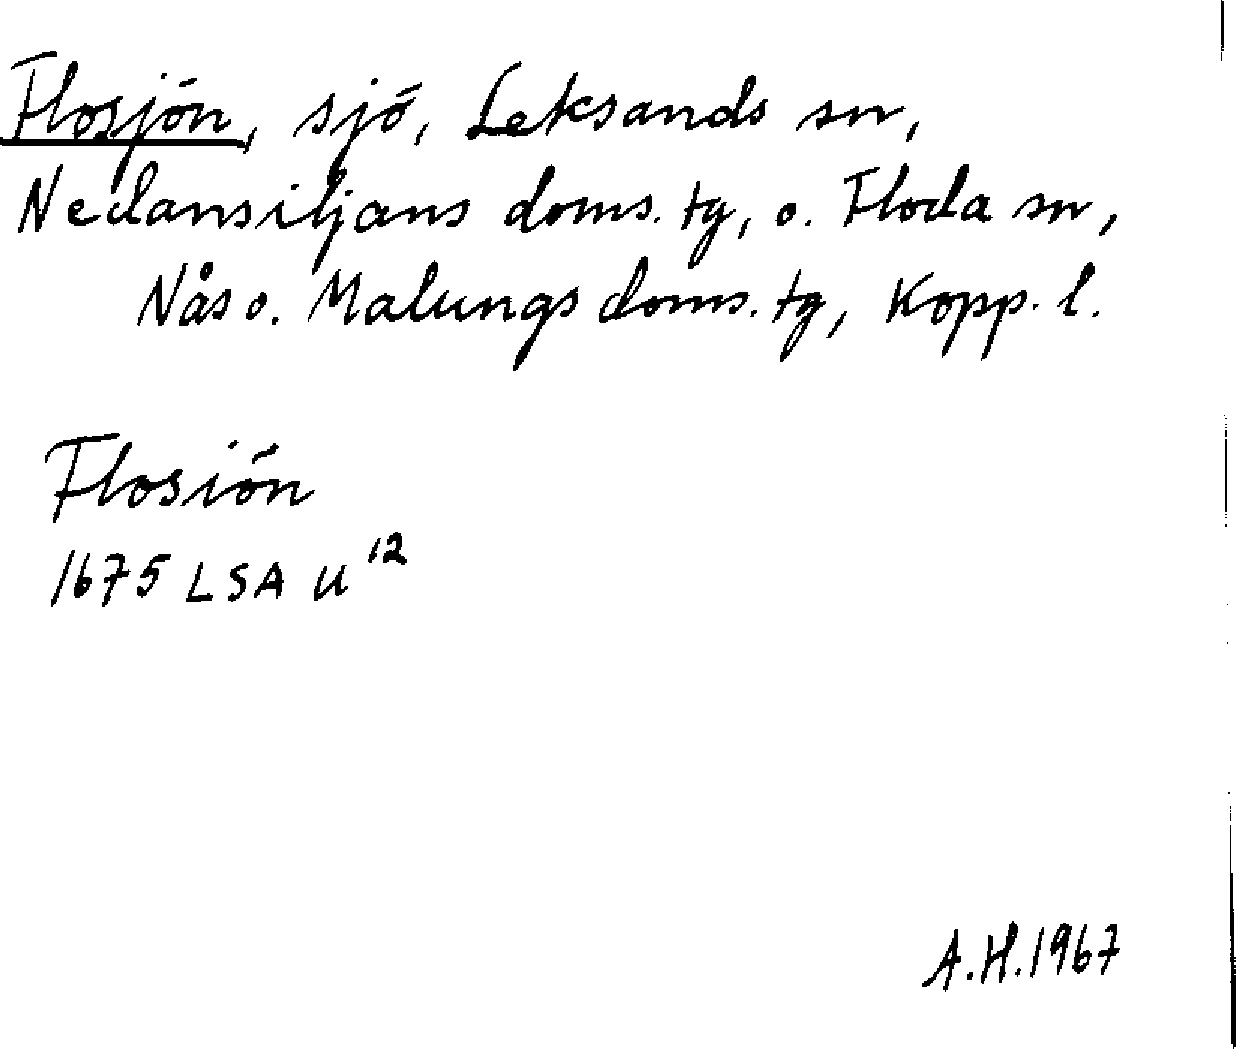 Flosjön, sjö, Leksands sn,
Nedansiljans doms. tg, o. Floda sn,
Nås o. Malungs doms. tg, Kopp. l.
Flosiön
1675 LSA U 12
A.H. 1967